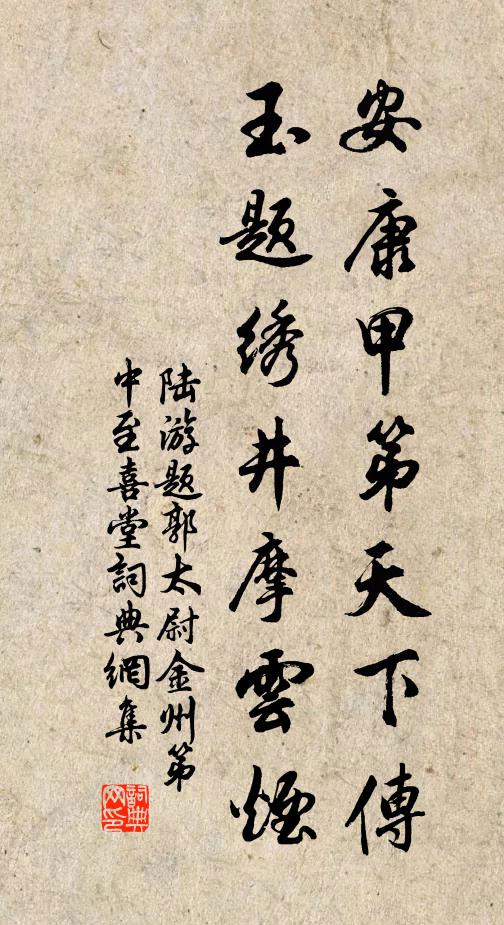 安康甲第天下傳
玉题绣井摩雲煙
陆游题郭太尉金州第
中至喜堂詞典網集
詞典网印